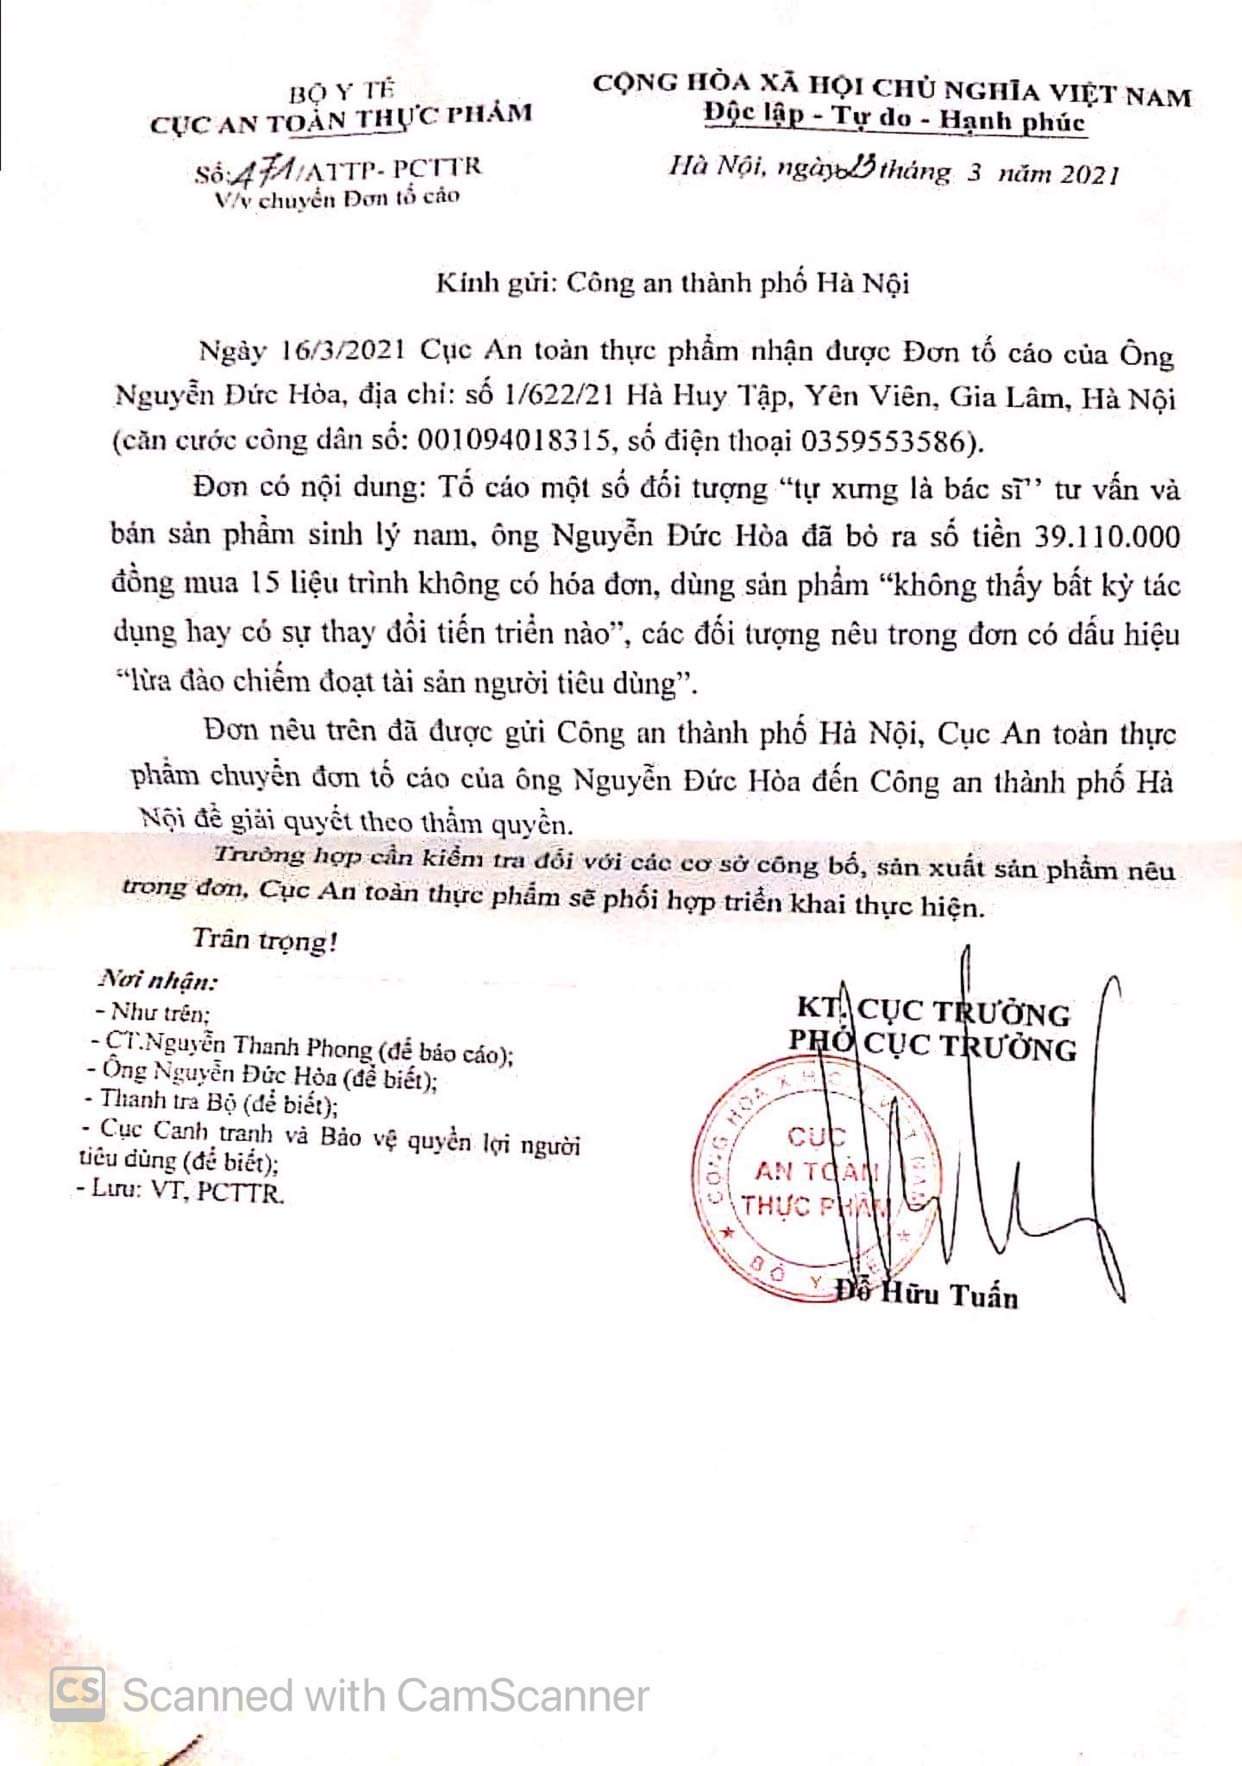 BỘ Y TẾ
CỤC AN TOÀN THỰC PHẨM
CỘNG HÒA XÃ HỘI CHỦ NGHĨA VIỆT NAM
Độc lập - Tự do - Hạnh phúc
Số: 471/ATTP- PCTTR
V/v chuyển Đơn tố cáo
Hà Nội, ngày 23 tháng 3 năm 2021
Kính gửi: Công an thành phố Hà Nội
Ngày 16/3/2021 Cục An toàn thực phẩm nhận được Đơn tố cáo của Ông
Nguyễn Đức Hòa, địa chỉ: số 1/622/21 Hà Huy Tập, Yên Viên, Gia Lâm, Hà Nội
(căn cước công dân số: 001094018315, số điện thoại 0359553586).
Đơn có nội dung: Tố cáo một số đối tượng “tự xưng là bác sĩ’’ tư vấn và
bán sản phẩm sinh lý nam, ông Nguyễn Đức Hòa đã bỏ ra số tiền 39.110.000
đồng mua 15 liệu trình không có hóa đơn, dùng sản phẩm “không thấy bất kỳ tác
dụng hay có sự thay đổi tiến triển nào”, các đối tượng nêu trong đơn có dấu hiệu
“lừa đảo chiếm đoạt tài sản người tiêu dùng”.
Đơn nêu trên đã được gửi Công an thành phố Hà Nội, Cục An toàn thực
phẩm chuyển đơn tố cáo của ông Nguyễn Đức Hòa đến Công an thành phố Hà
Nội để giải quyết theo thẩm quyền.
Trường hợp cần kiểm tra đối với các cơ sở công bố, sản xuất sản phẩm nêu
trong đơn, Cục An toàn thực phẩm sẽ phối hợp triển khai thực hiện.
Trân trọng!
Nơi nhận:
- Như trên;
- CT.Nguyễn Thanh Phong (để báo cáo);
- Ông Nguyễn Đức Hòa (để biết);
- Thanh tra Bộ (để biết);
- Cục Cạnh tranh và Bảo vệ quyền lợi người
tiêu dùng (để biết);
- Lưu: VT, PCTTR.
KT. CỤC TRƯỞNG
PHÓ CỤC TRƯỞNG
CỘNG HÒA X.H.C.N VIỆT NAM
CỤC
AN TOÀN
THỰC PHẨM
★ BỘ Y TẾ ★
Đỗ Hữu Tuấn
CS Scanned with CamScanner